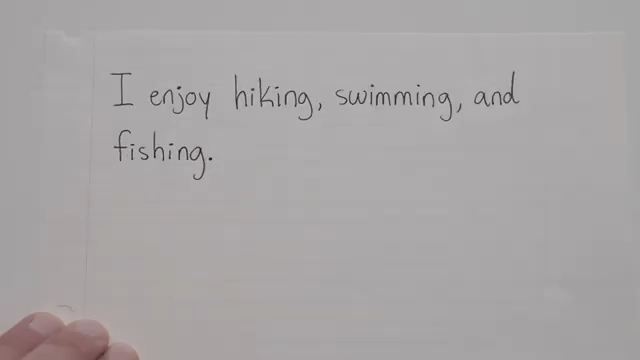 I enjoy hiking, swimming, and
fishing.